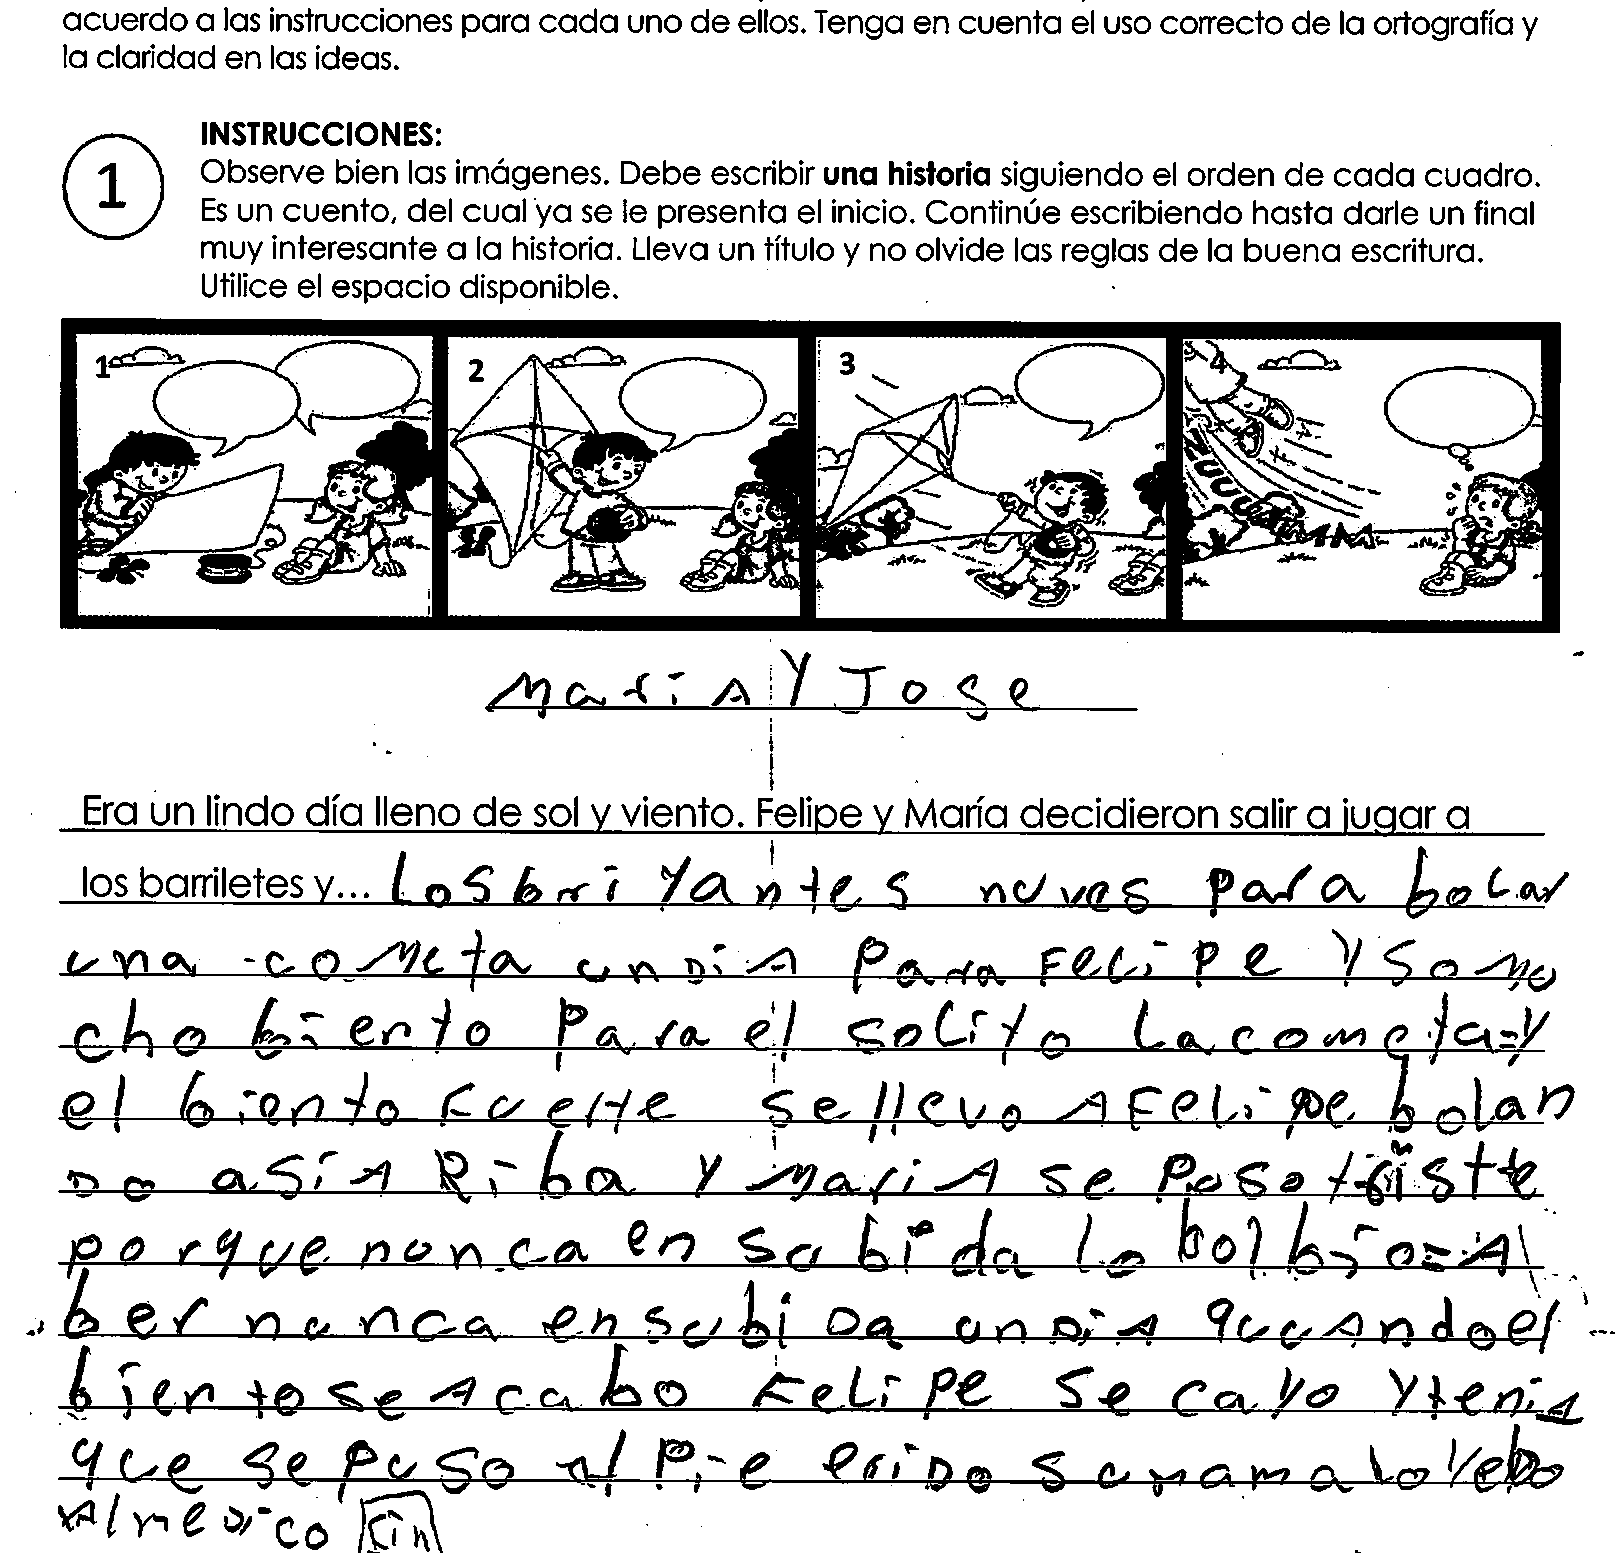 acuerdo a las instrucciones para cada uno de ellos. Tenga en cuenta el uso correcto de la ortografía y
la claridad en las ideas.
1
INSTRUCCIONES:
Observe bien las imágenes. Debe escribir una historia siguiendo el orden de cada cuadro.
Es un cuento, del cual ya se le presenta el inicio. Continúe escribiendo hasta darle un final
muy interesante a la historia. Lleva un título y no olvide las reglas de la buena escritura.
Utilice el espacio disponible.
1 2 3 4
ZUUUM
María Y Jose
Era un lindo día lleno de sol y viento. Felipe y María decidieron salir a jugar a
los barriletes y... Los briyantes nuves para bolar
una cometa un Dia para Felipe Y so mo
cho biento para el solito La cometa=y
el biento Fuerte se llevo A Felipe bolan
Do asia Riba y maria se puso triste
porque nunca en su bida lo bolbio=A
ber nunca en su biDa un Dia quuando el
biento se Acabo Felipe se cayo y tenia
que se puso el Pie eriDo su mama lo
Al meDico Fin